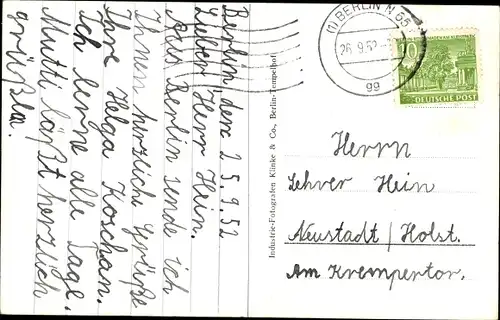 Berlin, den 25.9.52.
Lieber Herr Hein.
Aus Berlin sende ich
Ihnen herzliche Grüße
Ihre Helga Koschan.
Ich lerne alle Tage.
Mutti läßt herzlich
grüßen.
Industrie-Fotografen Klinke & Co., Berlin-Tempelhof
(1) BERLIN N 65
26.9.52
gg
10
DEUTSCHE POST
Herrn
Lehrer Hein
Neustadt/Holst.
Am Krempertor.